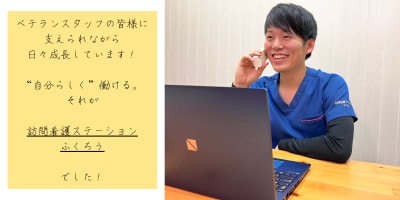 ベテランスタッフの皆様に
支えられながら
日々成長しています！
“自分らしく”働ける。
それが
訪問看護ステーション
ふくろう
でした！